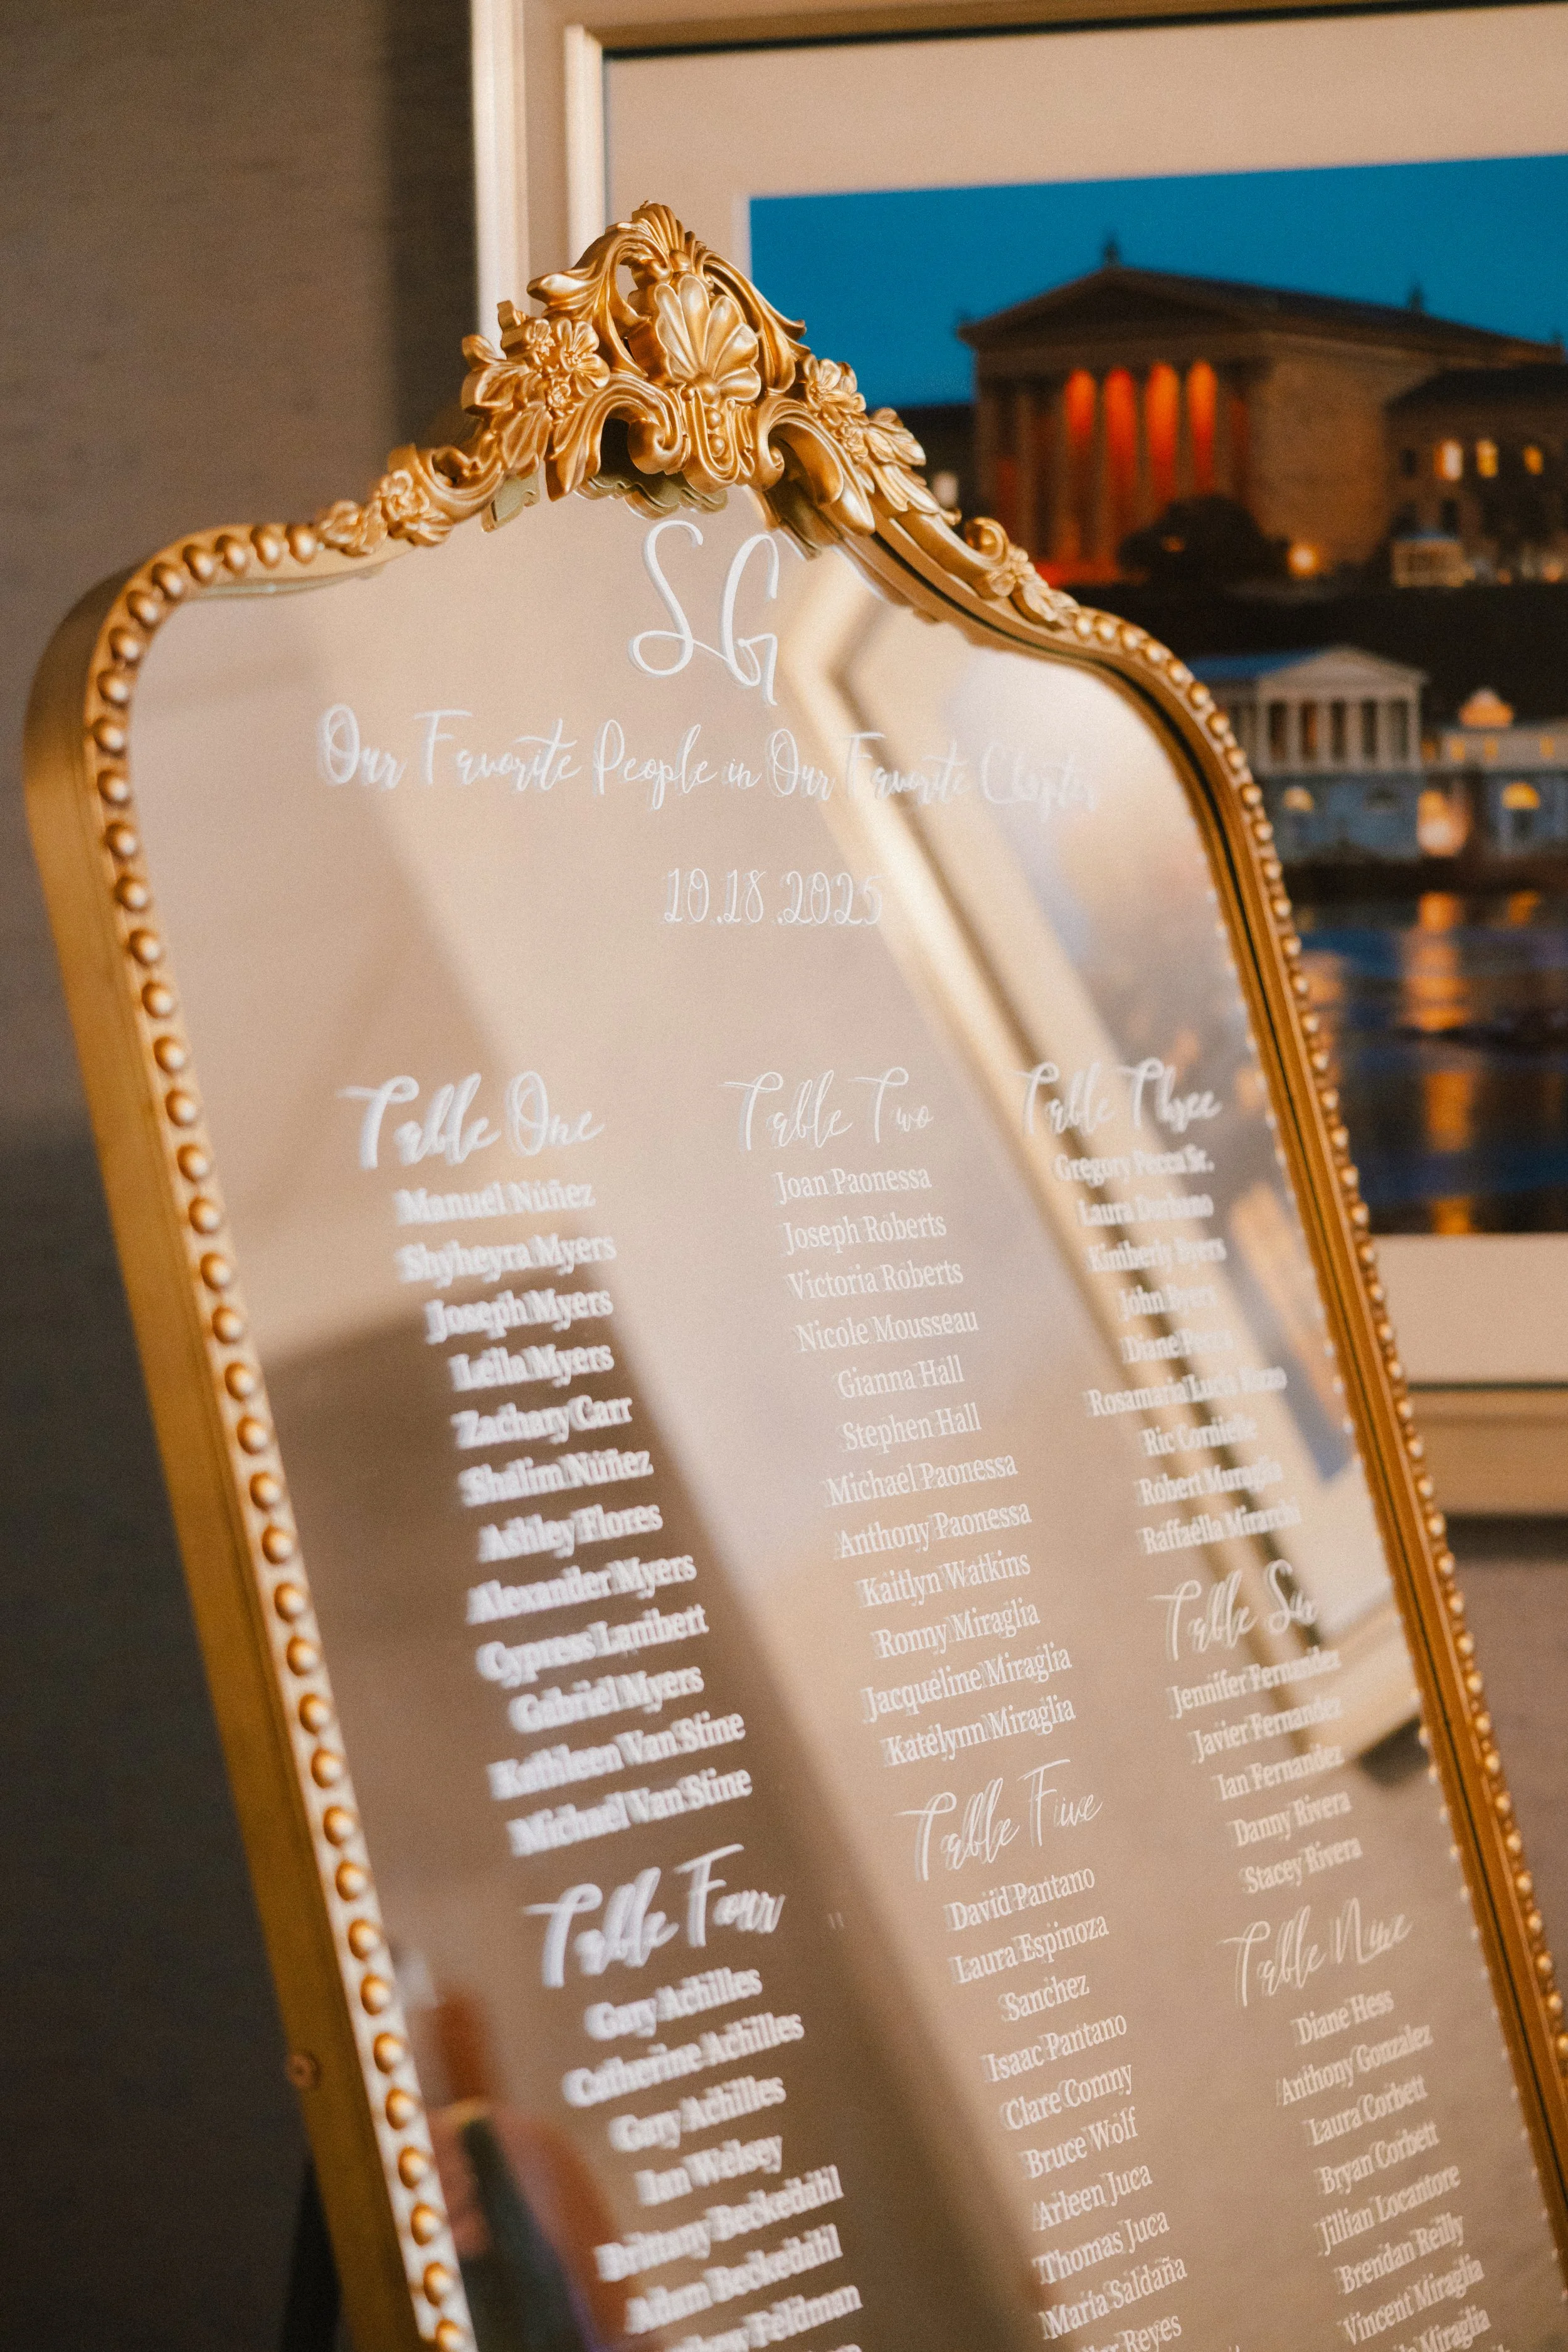 SG
Our Favorite People in Our Favorite Chapter
10.18.2025
Table One
Manuel Núñez
Shyheyra Myers
Joseph Myers
Leila Myers
Zachary Carr
Shilim Núñez
Ashley Flores
Alexander Myers
Cypress Lambert
Gabriel Myers
Kathleen Van Stine
Michael Van Stine
Table Four
Gary Achilles
Catherine Achilles
Gary Achilles
Ian Welsey
Brittany Beckedahl
Adam Beckedahl
Feldman
Table Two
Joan Paonessa
Joseph Roberts
Victoria Roberts
Nicole Mousseau
Gianna Hall
Stephen Hall
Michael Paonessa
Anthony Paonessa
Kaitlyn Watkins
Ronny Miraglia
Jacqueline Miraglia
Katelynn Miraglia
Table Five
David Pantano
Laura Espinoza
Sanchez
Isaac Pantano
Clare Comny
Bruce Wolf
Arleen Juca
Thomas Juca
Maria Saldaña
Reyes
Table Three
Gregory Pecca Sr.
Laura
Kimberly Byers
John Byers
Diane
Rosamaria Lucia
Ric
Robert Muraglia
Raffaella Mirarchi
Table Six
Jennifer Fernandez
Javier Fernandez
Ian Fernandez
Danny Rivera
Stacey Rivera
Table Nine
Diane Hess
Anthony Gonzalez
Laura Corbett
Bryan Corbett
Jillian Locantore
Brendan Reilly
Vincent Miraglia
Miraglia